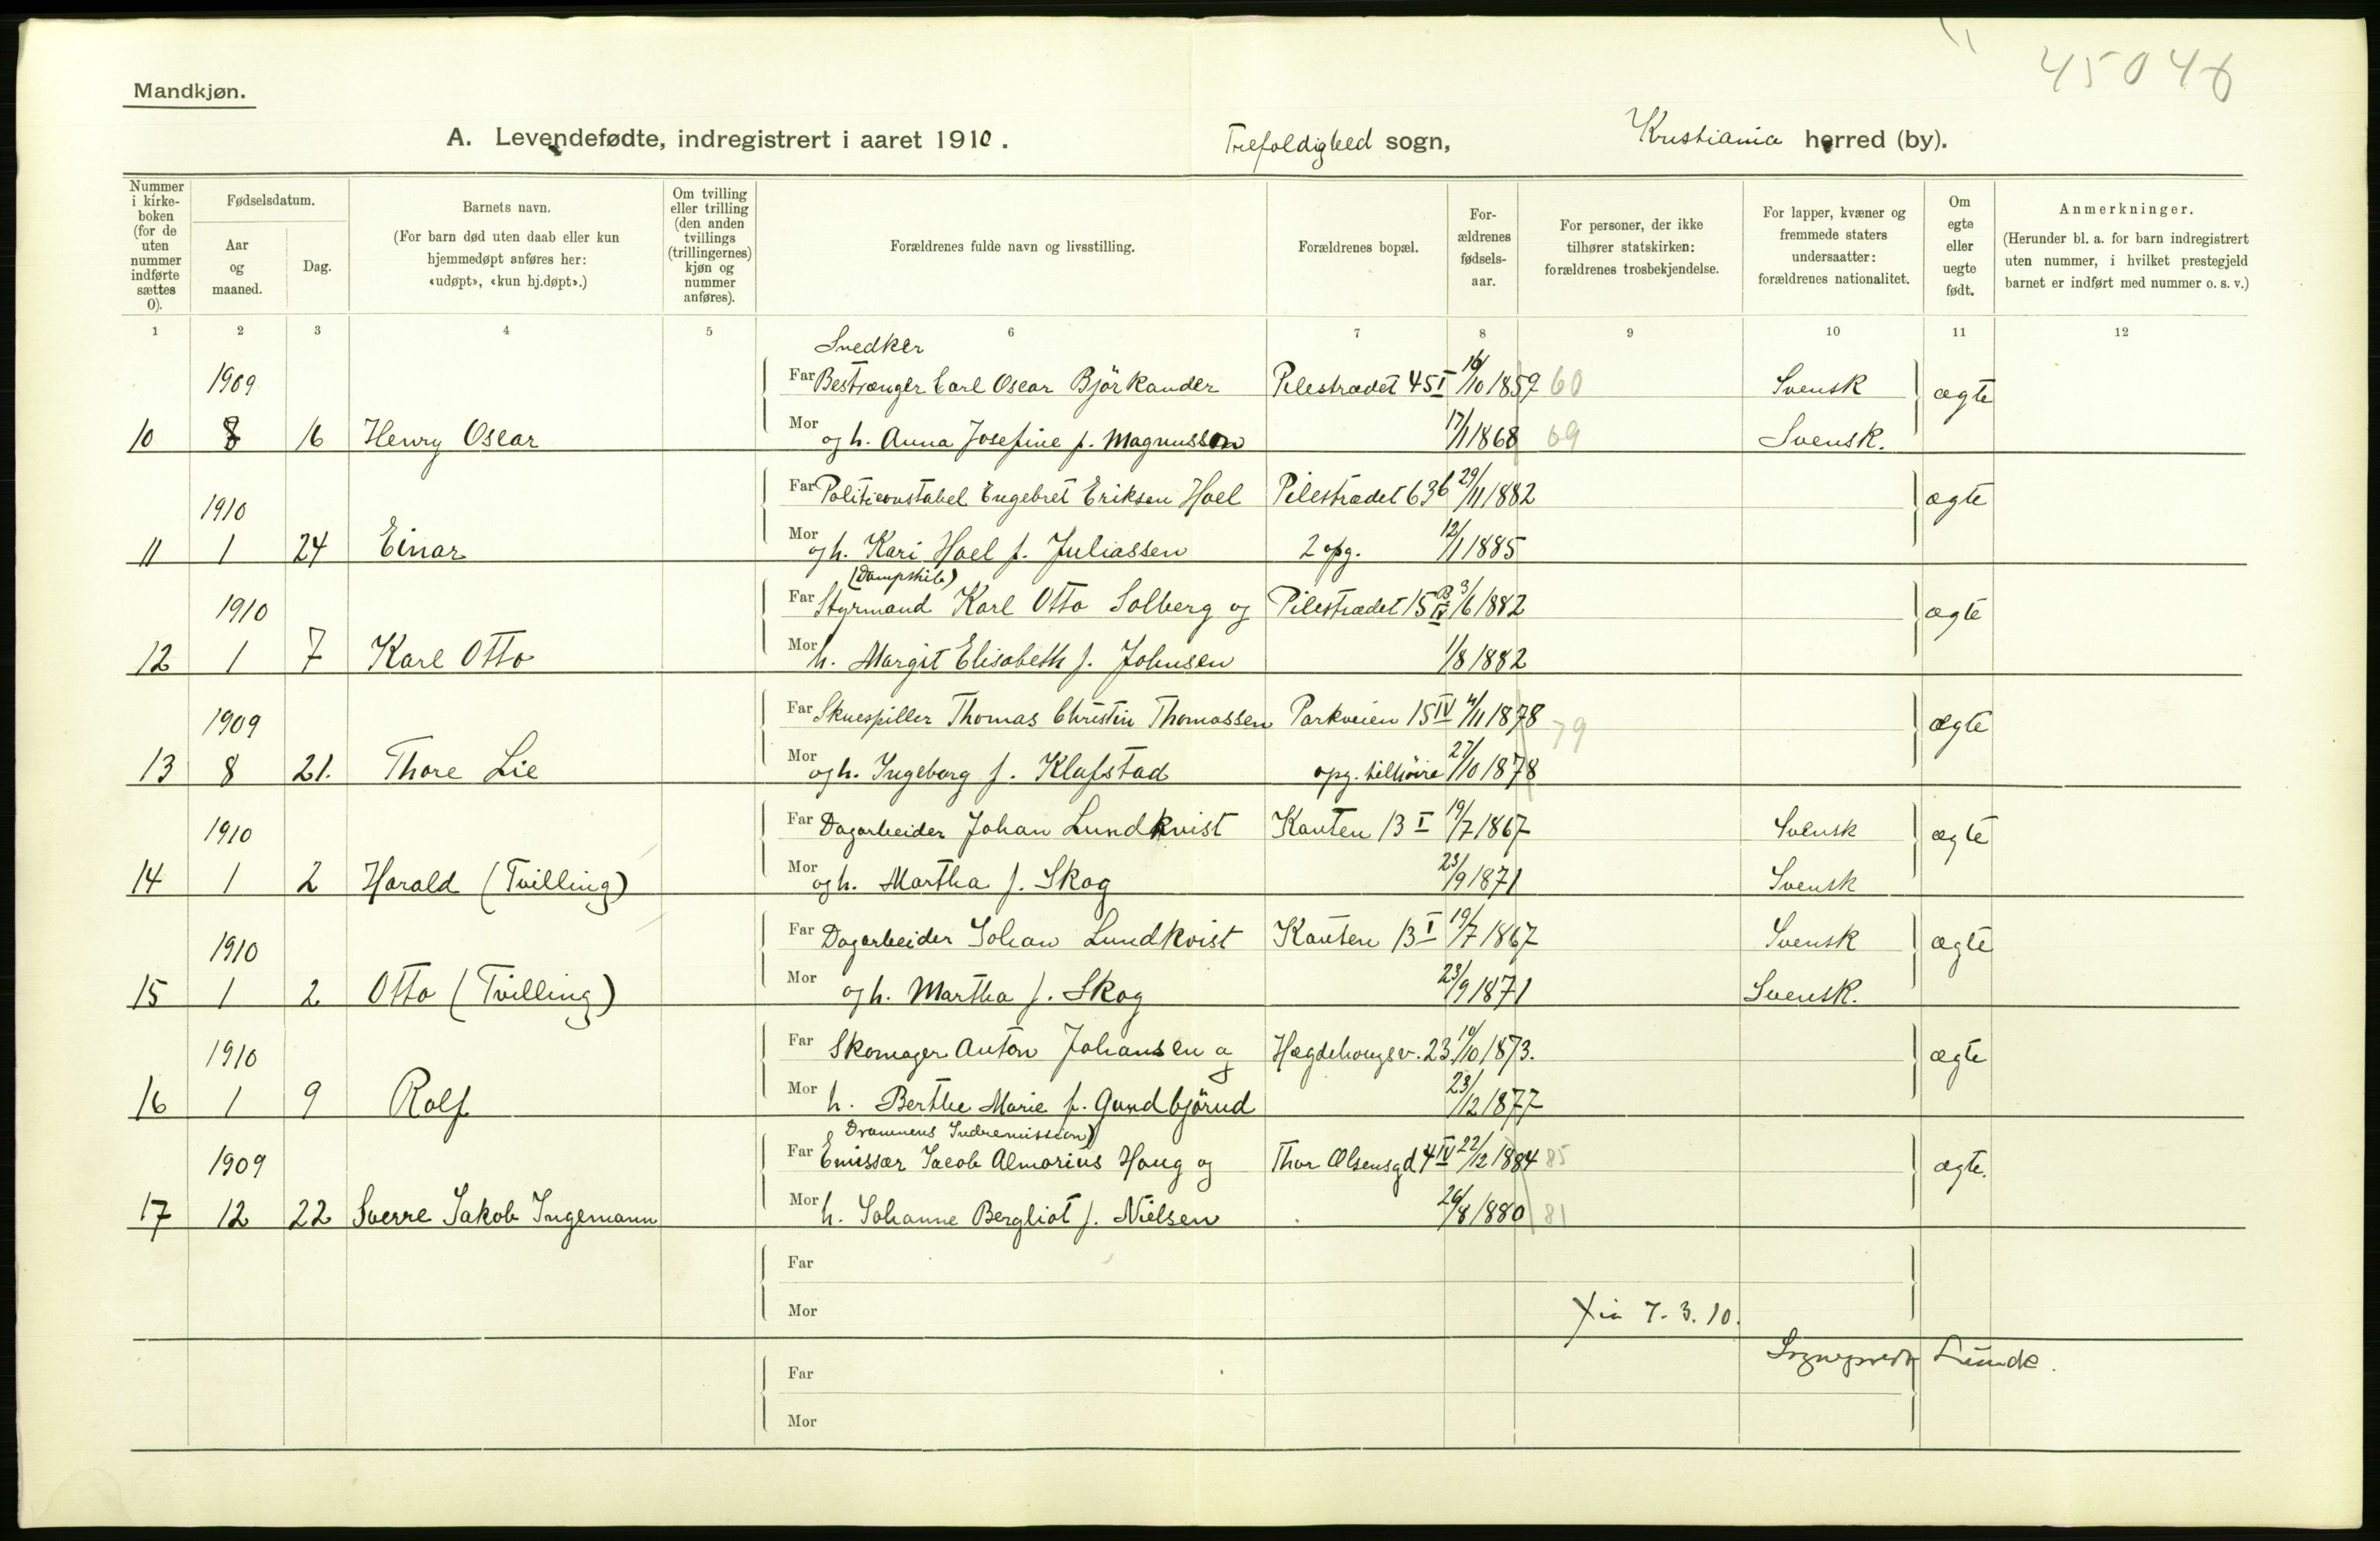 45046
Mandkjøn.
A. Levendefødte, indregistrert i aaret 1910. Trefoldighed sogn, Kristiania herred (by).
Nummer i kirke-boken (for de uten nummer indførte sættes 0).
Fødselsdatum.
Aar og maaned.
Dag.
Barnets navn.
(For barn død uten daab eller kun hjemmedøpt anføres her: «udøpt», «kun hj.døpt».)
Om tvilling eller trilling (den anden tvillings (trillingernes) kjøn og nummer anføres).
Forældrenes fulde navn og livsstilling.
Forældrenes bopæl.
For-ældrenes fødsels-aar.
For personer, der ikke tilhører statskirken: forældrenes trosbekjendelse.
For lapper, kvæner og fremmede staters undersaatter: forældrenes nationalitet.
Om egte eller uegte født.
Anmerkninger.
(Herunder bl. a. for barn indregistrert uten nummer, i hvilket prestegjeld barnet er indført med nummer o. s. v.)
1 2 3 4 5 6 7 8 9 10 11 12
Snedker
1909 Far Carl Oscar Björkander Pilestrædet 45 I 16/10 1859 60 Svensk ægte
10 8 16 Henry Oscar Mor og h. Anna Josefine f. Magnusson 17/1 1868 69 Svensk.
1910 Far Politiconstabel Engebret Eriksen Hoel Pilestrædet 63b 29/11 1882 ægte
11 1 24 Einar Mor og h. Kari Hoel f. Juliassen 2 opg. 12/1 1885
(Dampskib)
1910 Far Styrmand Karl Otto Solberg og Pilestrædet 15 B IV 3/6 1882 ægte
12 1 7 Karl Otto Mor h. Margit Elisabeth f. Johnsen 1/8 1882
1909 Far Skuespiller Thomas Christin Thomassen Parkveien 15 IV 4/11 1878 79 ægte
13 8 21. Thore Lie Mor og h. Ingeborg f. Klafstad opg. tilhöire 27/10 1878
1910 Far Dagarbeider Johan Lundkvist Kanten 13 I 19/7 1867 Svensk ægte
14 1 2 Harald (Tvilling) Mor og h. Martha f. Skog 23/9 1871 Svensk
1910 Far Dagarbeider Johan Lundkvist Kanten 13 I 19/7 1867 Svensk ægte
15 1 2 Otto (Tvilling) Mor og h. Martha f. Skog 23/9 1871 Svensk.
1910 Far Skomager Anton Johansen og Hægdehougsv. 23. 19/10 1873. ægte
16 1 9 Rolf Mor h. Berthe Marie f. Gundbjörud 23/12 1877
Drammens Indremission)
1909 Far Emissær Jacob Almarius Haug og Thor Olsensgd 4 IV 22/12 1884 85 ægte.
17 12 22 Sverre Jakob Ingemann Mor h. Johanne Bergliot f. Nielsen 26/8 1880 81
Far
Mor Xia 7.3.10.
Sogneprest Lunde.
Far
Mor